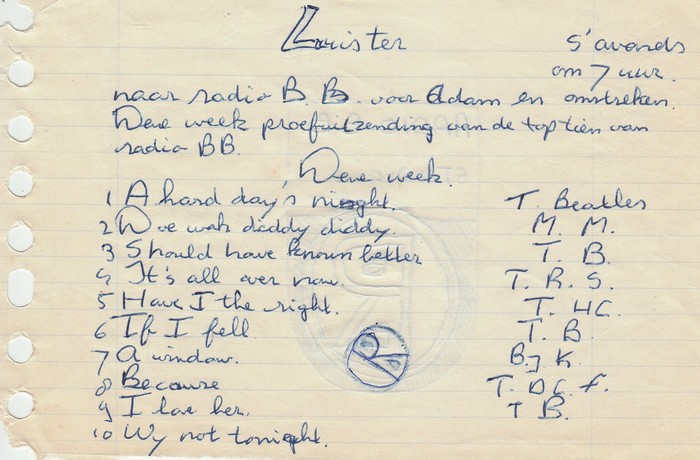 Luister
S'avonds
om 7 uur.
naar radio B. B. voor Adam en omstreken.
Deze week proefuitzending van de top tien van
radio BB.
Deze week.
1 A hard day's night. T. Beatles
2 Doe wah daddy diddy. M. M.
3 Should have known better T. B.
4 It's all over now. T. R. S.
5 Have I the right. T. HC.
6 If I fell. T. B.
7 A window. B. J. K.
8 Because T. D C. F.
9 I love her. T B.
10 Wy not tonight.
R